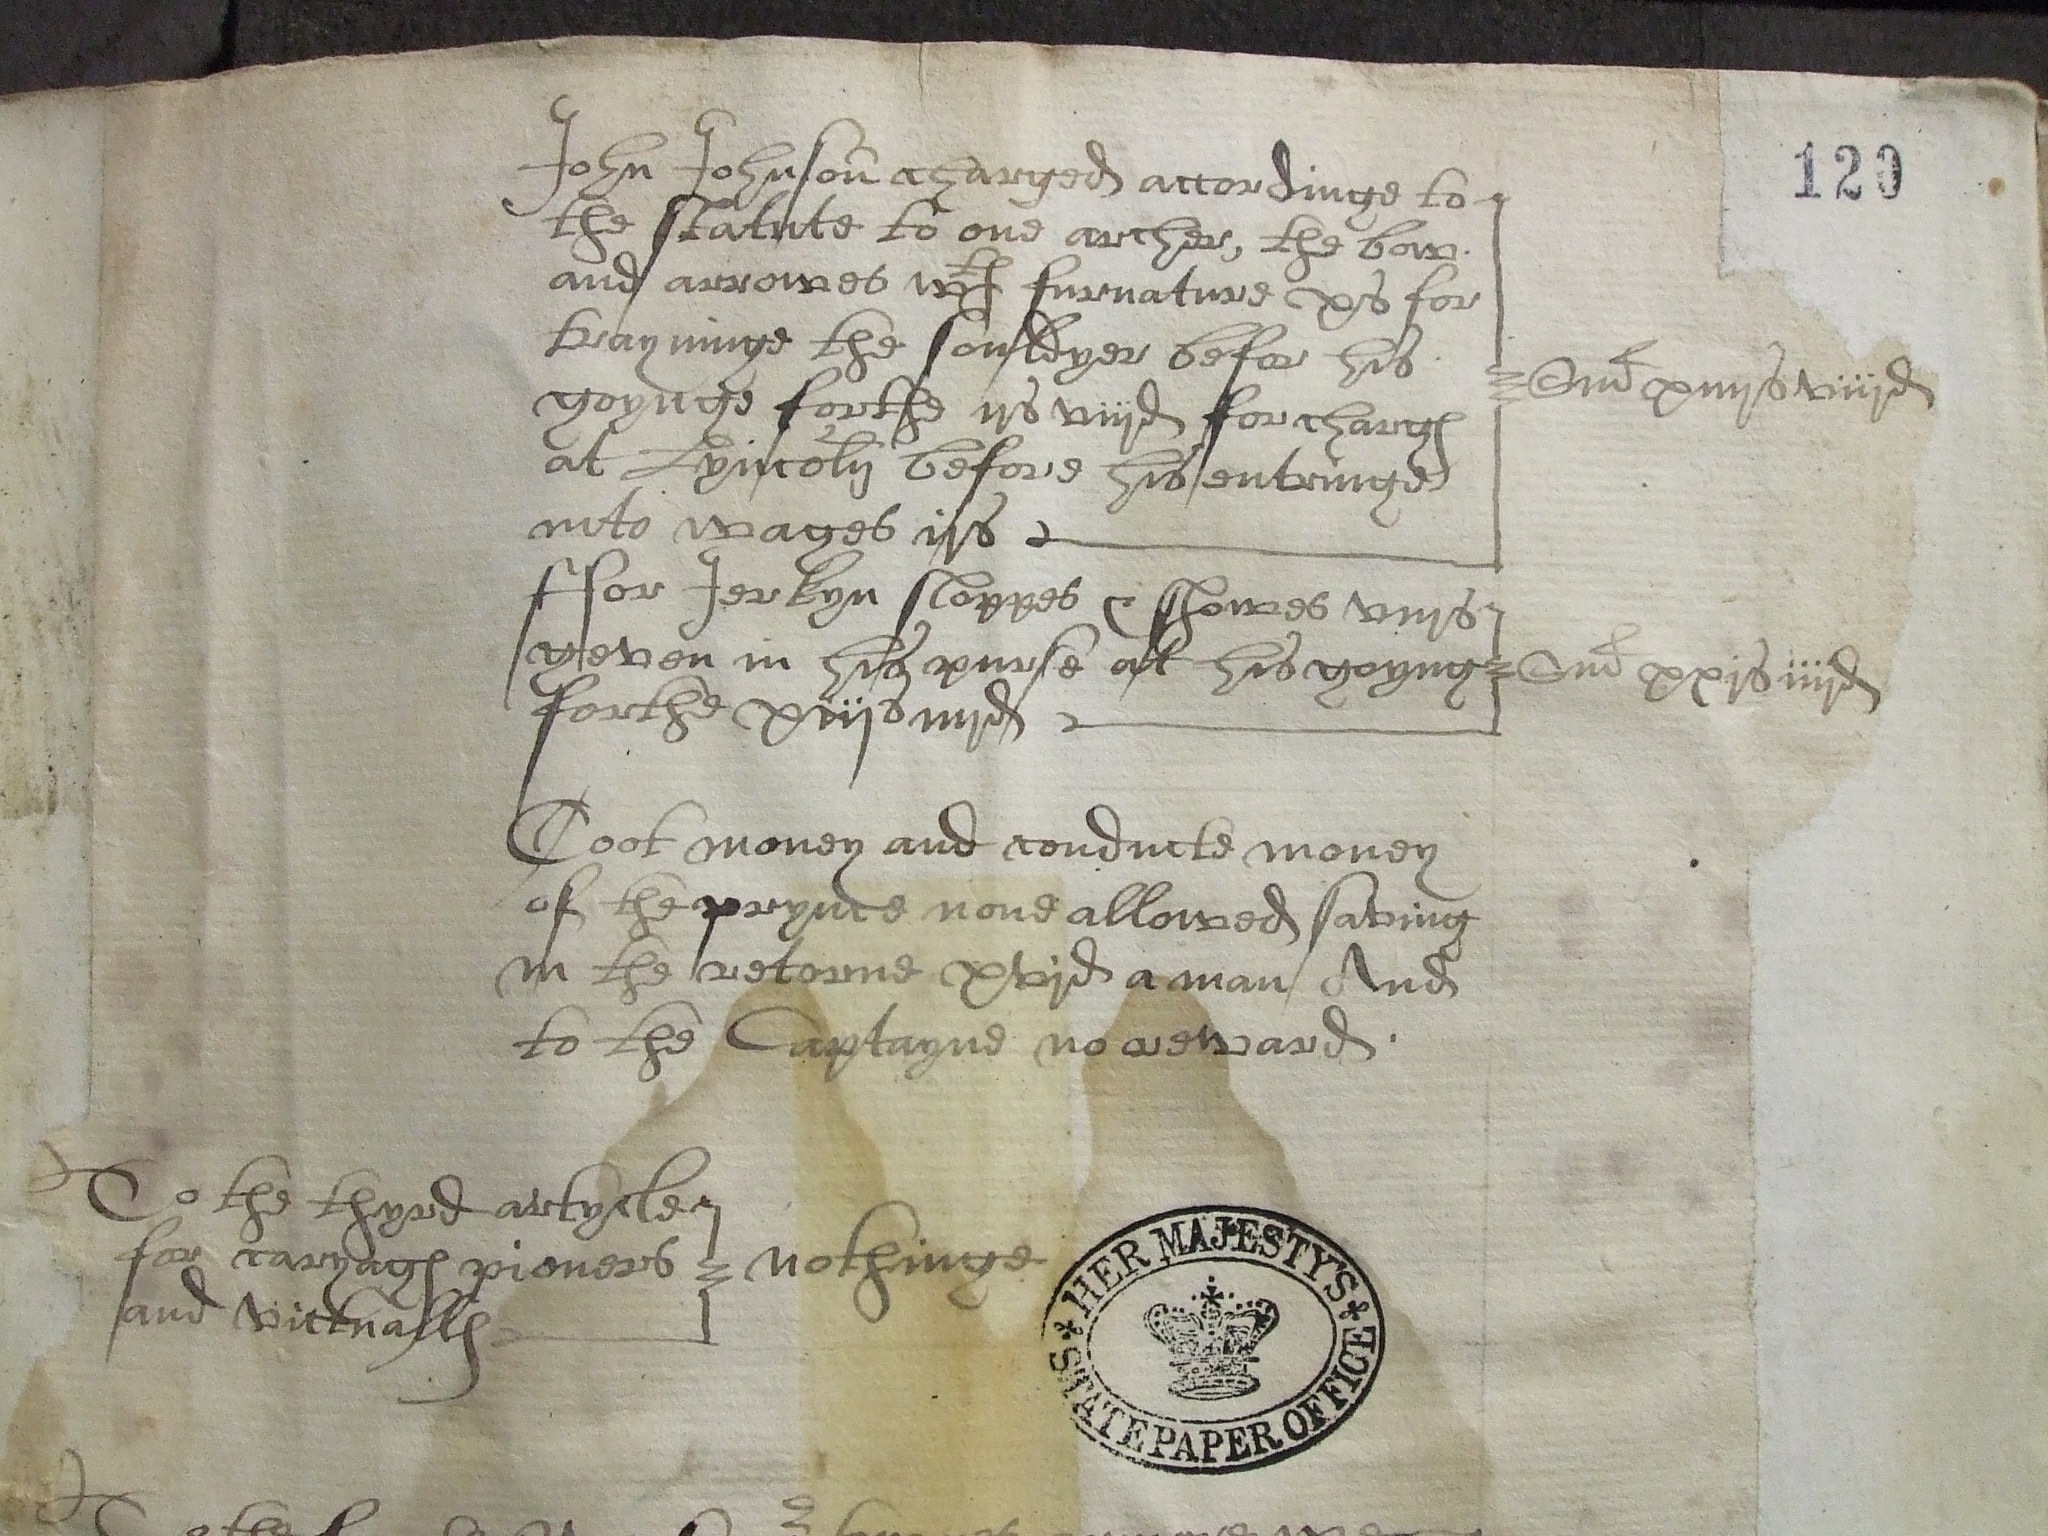 120
John Johnson charged accordinge to
the statute to one archer, the bow
and arrowes wth furnature xs for
trayninge the souldyer befor his
goynge forthe ijs viijd for charg
at Lyncoln before his entringe
into wages ijs
Sm xiiijs viijd
ffor Jerkyn sloppes & showes viijs
geven in his purse at his goyng
forthe xiijs iiijd
Sm xxjs iiijd
Coot money and conducte money
of the prynce none allowed saving
in the retorne xvjd a man And
to the Captayne no reward.
To the thyrd artycle
for caryag pioners
and victuall
nothinge
HER MAJESTY'S
STATE PAPER OFFICE